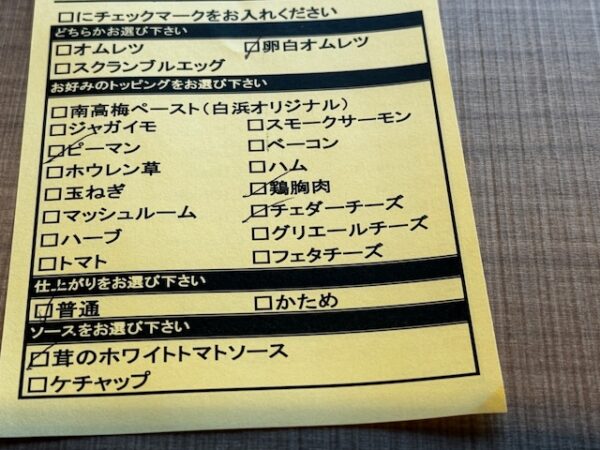 □にチェックマークをお入れください
どちらかお選び下さい
□オムレツ ☑卵白オムレツ
□スクランブルエッグ
お好みのトッピングをお選び下さい
□南高梅ペースト(白浜オリジナル)
□ジャガイモ □スモークサーモン
☑ピーマン □ベーコン
□ホウレン草 □ハム
□玉ねぎ ☑鶏胸肉
□マッシュルーム ☑チェダーチーズ
□ハーブ □グリエールチーズ
□トマト □フェタチーズ
仕上がりをお選び下さい
☑普通 □かため
ソースをお選び下さい
☑茸のホワイトトマトソース
□ケチャップ